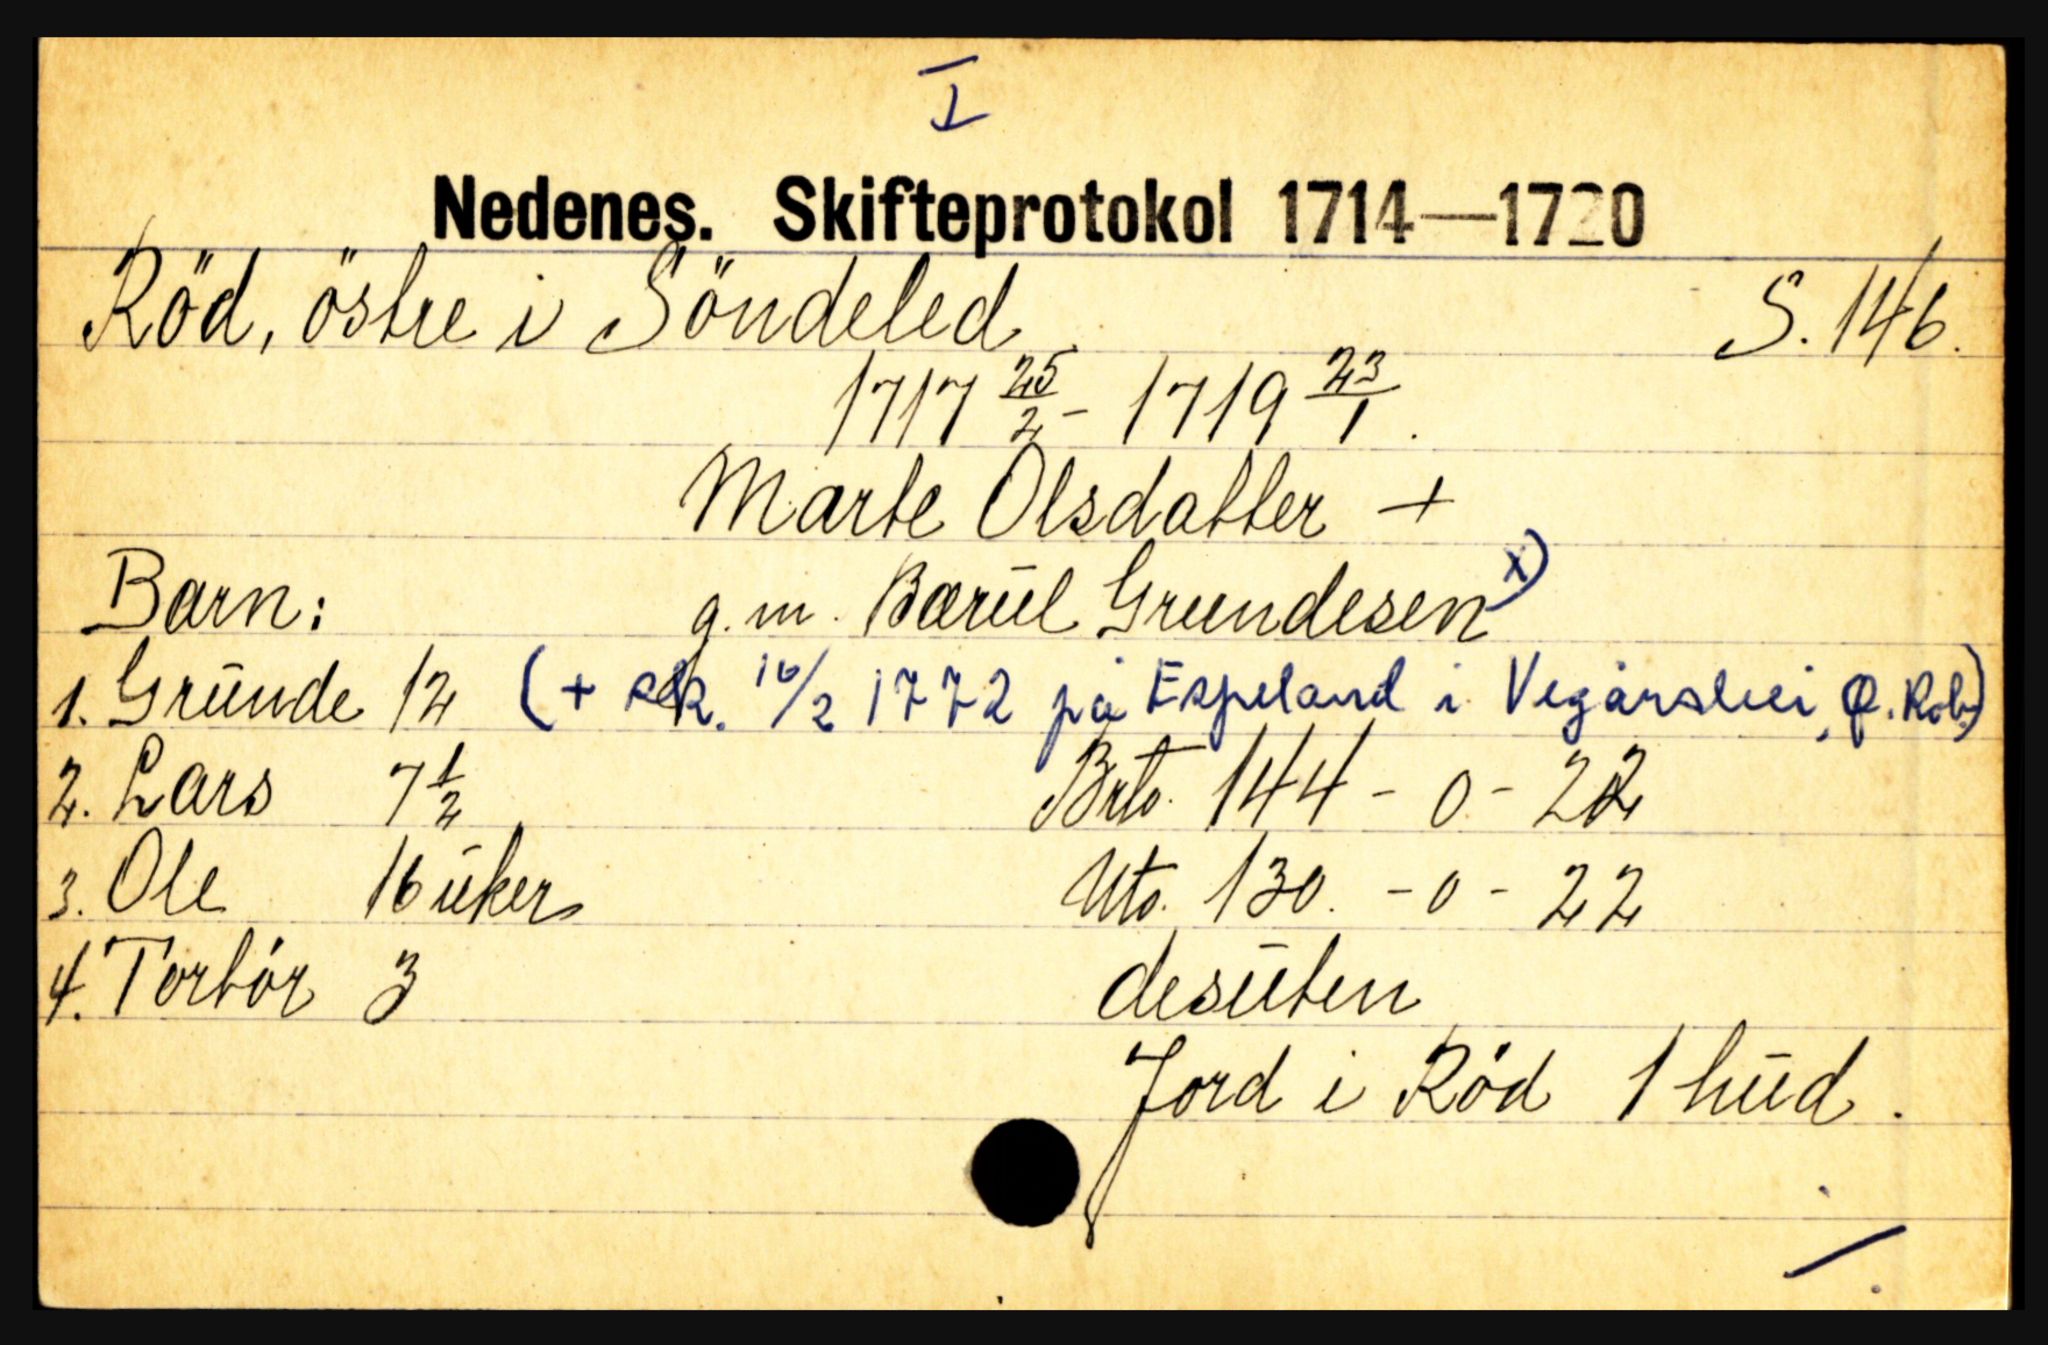 I
Nedenes. Skifteprotokol 1714—1720
Röd, östre i Söndeled S. 146.
1717 25/2 - 1719 23/1.
Marte Olsdatter +
Barn: g.m. Bærūl Grundesen x)
1. Grūnde 12 (+ sk. 16/2 1772 på Espeland i Vegårshei, Q. Rob.)
2. Lars 7 1/2 Brto. 144 - 0 - 22
3. Ole 16 ūker Nto. 130. - 0 - 22
4. Torbör 3 desūten
Jord i Röd 1 hūd.